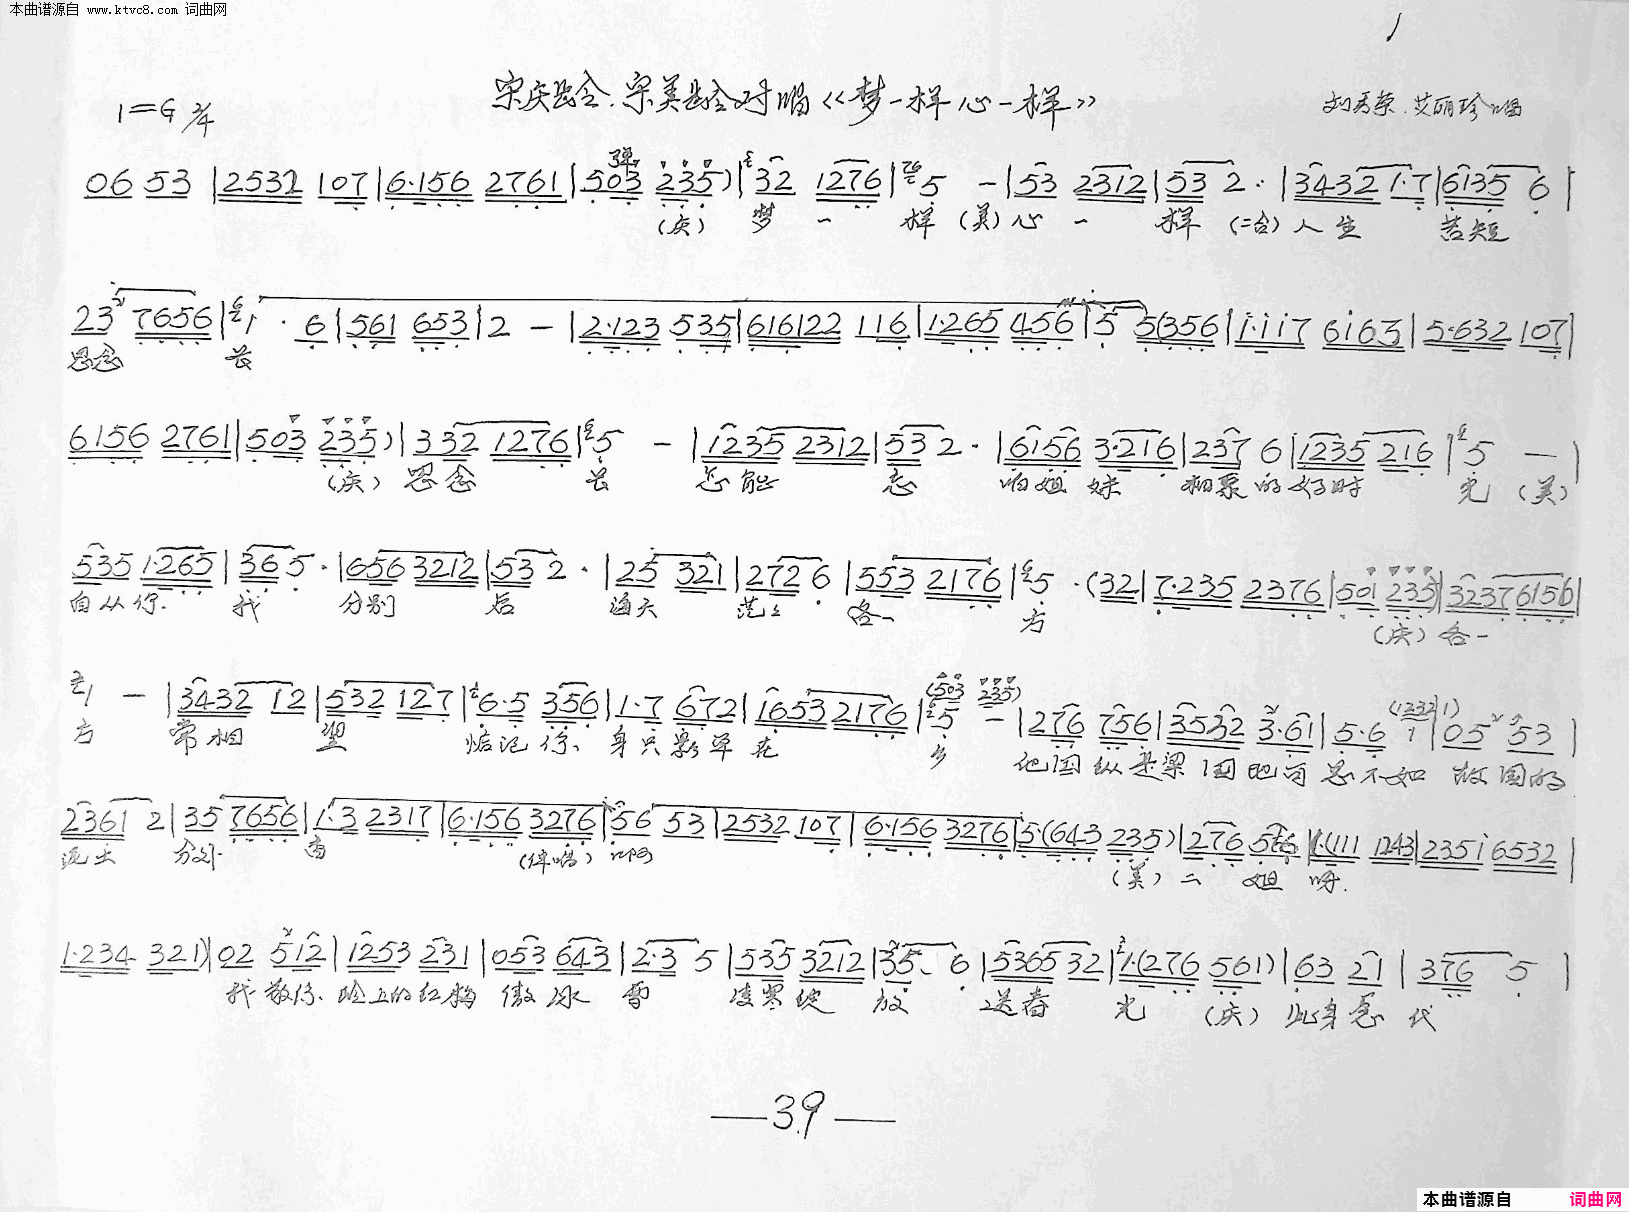 本曲谱源自 www.ktvc8.com 词曲网
1
宋庆龄、宋美龄对唱《梦一样心一样》
1=G 2/4
刘秀荣、艾丽珍唱
06 53 |2532 107|6·156 2761|503 235)|32 1276|5 - |53 2312|53 2· |3432 1·7|6135 6|
(庆) 梦 一 样 (美) 心 一 样 (二合) 人生 苦短
23 7656|1· 6|561 653|2 - |2·123 535|616122 116|1·265 456|5 5(356|1·117 6163|5·632 107|
思念 长
6156 2761|503 235)|332 1276|5 - |1235 2312|53 2· |6156 3·216|237 6|1235 216|5 - |
(庆) 思念 长 怎能 忘 咱姐妹 相聚的好时 光 (美)
535 1·265|36 5· |656 3212|53 2· |25 321|2726|553 2176|5 ·(32|7·235 2376|501 235)|3237 6156|
自从你、我 分别 后 海天 茫茫 各一 方 (庆) 各一
1 - |3432 12|532 127|6·5 356|1·7 672|1653 2176|5 - |276 756|3532 3·61|5·6 1|05 53|
(503 235) (12321)
方 常相 望 惦记你、身只影单在 乡 他国纵是梁园地 总不如 故国的
2361 2|35 7656|1·3 2317|6·156 3276|56 53|2532 107|6·156 3276|5·(643 235)|276 576|1·(111 1243|2351 6532|
泥土 分外 香 (伴唱) 啊 (美) 二 姐 呀
1·234 321)|02 512|1253 231|053 643|2·3 5|535 3212|35· 6|536532|1·(276 561)|63 21|376 5|
我敬你、岭上的红梅 傲冰 雪 凌寒绽 放 送春 光 (庆) 此身 代
—39—
本曲谱源自 词曲网